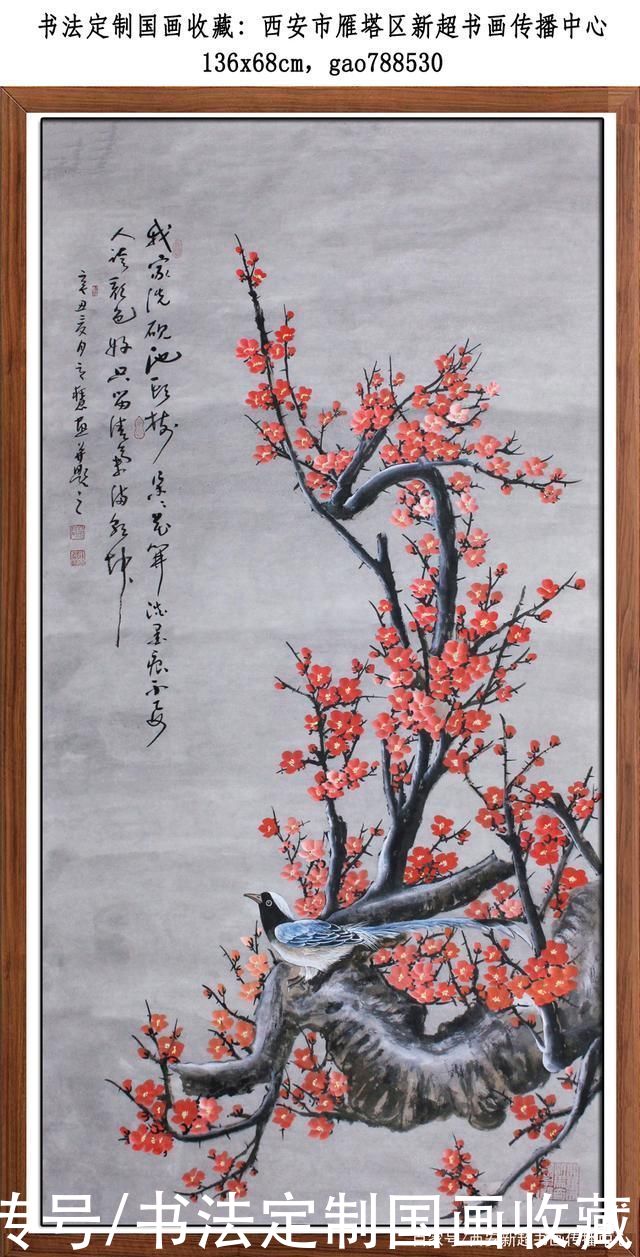 书法定制国画收藏：西安市雁塔区新超书画传播中心
136x68cm，gao788530
我家洗砚池头树朵朵花开淡墨痕不要
人夸颜色好只留清气满乾坤
辛丑亥月画并题之
号/书法定制国画收藏
百家号/西安新超书画传播中